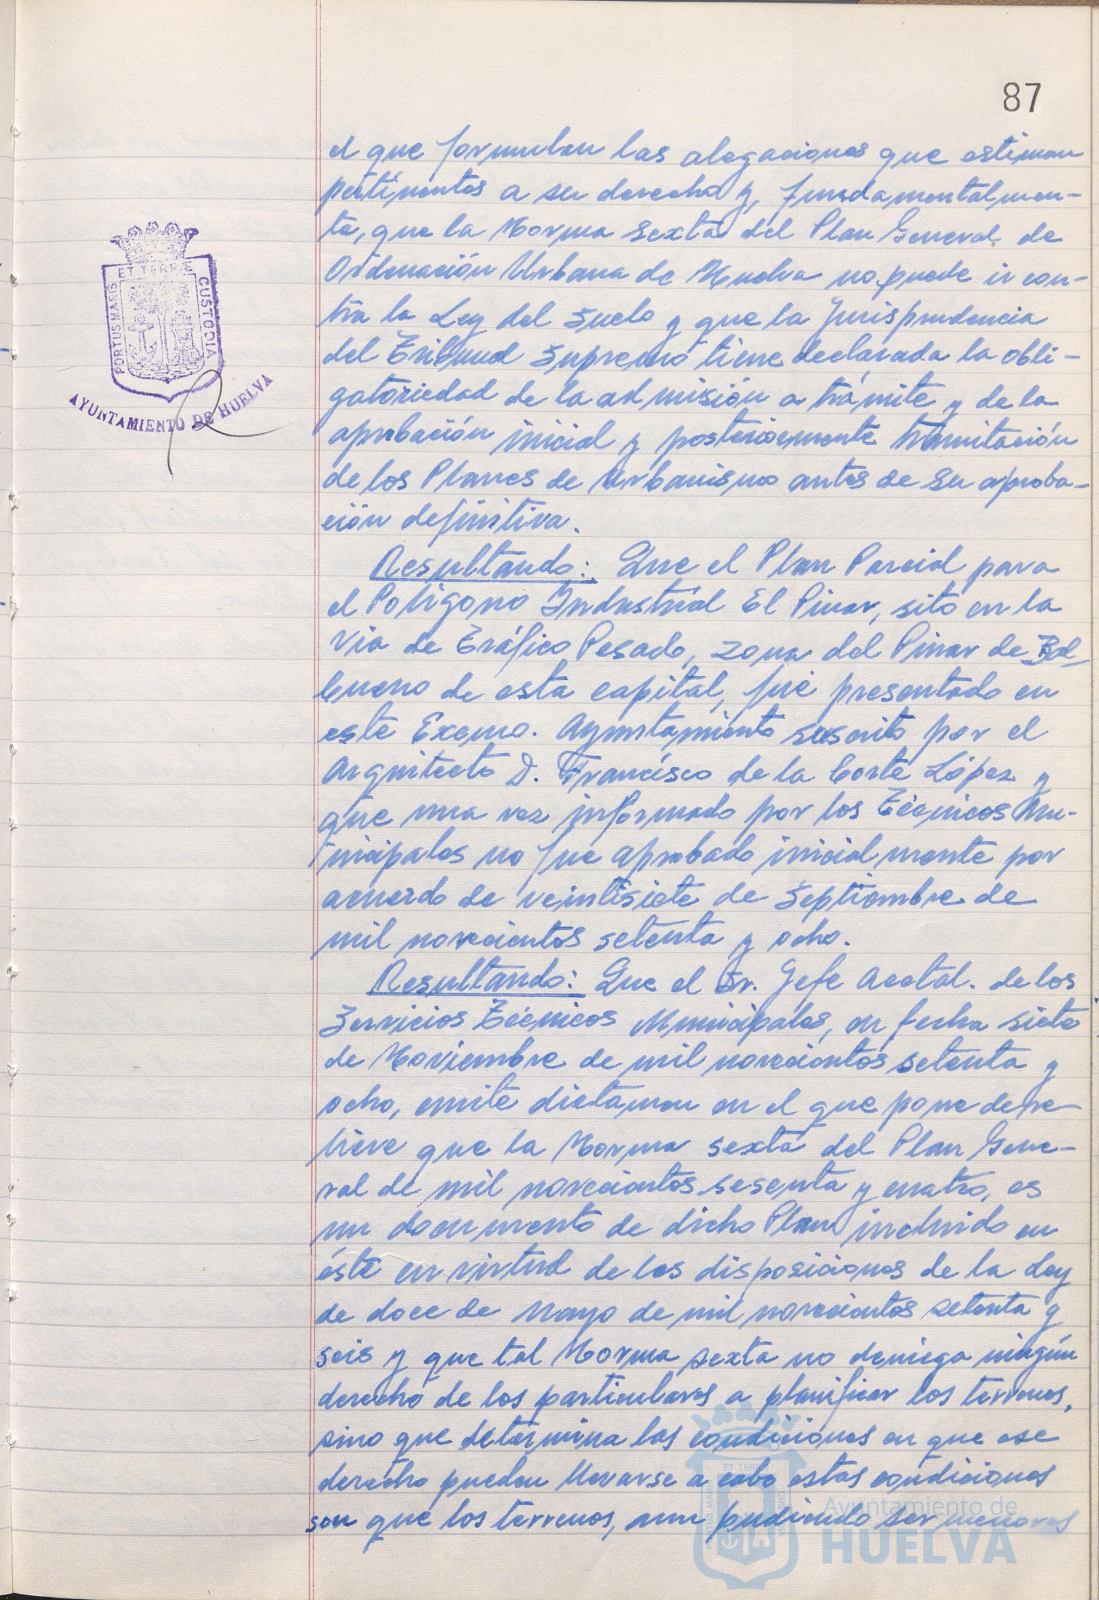 87
el que formulan las alegaciones que estiman
pertinentes a su derecho y, fundamentalmen-
te, que la Norma Sexta del Plan General de
Ordenación Urbana de Huelva no puede ir con-
tra la Ley del Suelo y que la Jurisprudencia
del Tribunal Supremo tiene declarada la obli-
gatoriedad de la admisión a trámite y de la
aprobación inicial y posteriormente tramitación
de los Planes de Urbanismo antes de su aproba-
ción definitiva.
Resultando: Que el Plan Parcial para
el Polígono Industrial El Pinar, sito en la
Vía de Tráfico Pesado, zona del Pinar de Bal
bueno de esta capital, fué presentado en
este Excmo. Ayuntamiento suscrito por el
Arquitecto D. Francisco de la Corte López y
que una vez informado por los Técnicos Mu-
nicipales no fue aprobado inicialmente por
acuerdo de veintisiete de Septiembre de
mil novecientos setenta y ocho.
Resultando: Que el Sr. Jefe Acctal. de los
Servicios Técnicos Municipales, en fecha siete
de Noviembre de mil novecientos setenta y
ocho, emite dictamen en el que pone de re-
lieve que la Norma sexta del Plan Gene-
ral de mil novecientos sesenta y cuatro, es
un documento de dicho Plan incluido en
éste en virtud de las disposiciones de la Ley
de doce de Mayo de mil novecientos setenta y
seis y que tal Norma sexta no deniega ningún
derecho de los particulares a planificar los terrenos,
sino que determina las condiciones en que ese
derecho pueden llevarse a cabo estas condiciones
son que los terrenos, aun pudiendo ser menores
PORTUS MARIS ET TERRE CUSTODIA
AYUNTAMIENTO DE HUELVA
Ayuntamiento de
HUELVA